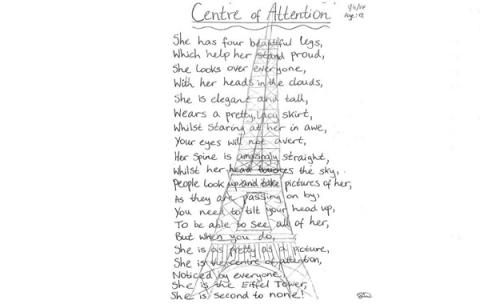 Centre of Attention
She has four beautiful legs,
Which help her stand proud,
She looks over everyone,
With her heads in the clouds,
She is elegant and tall,
Wears a pretty, lacy skirt,
Whilst staring at her in awe,
Your eyes will not avert,
Her spine is amazingly straight,
Whilst her head touches the sky,
People look up and take pictures of her,
As they are passing on by,
You need to tilt your head up,
To be able to see all of her,
But when you do,
She is as pretty as a picture,
She is the centre of attention,
Noticed by everyone,
She is the Eiffel Tower,
She is second to none!